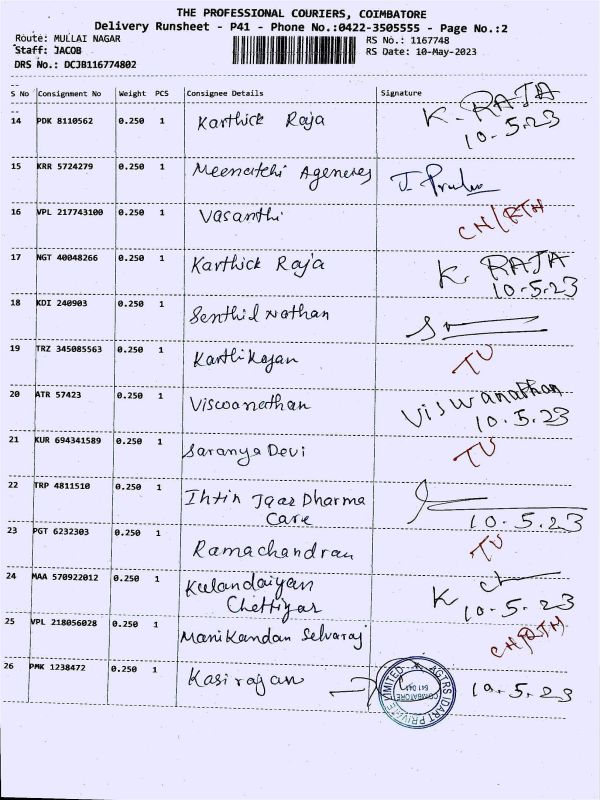 THE PROFESSIONAL COURIERS, COIMBATORE
Delivery Runsheet - P41 - Phone No.:0422-3505555 - Page No.:2
Route: MULLAI NAGAR RS No.: 1167748
Staff: JACOB RS Date: 10-May-2023
DRS No.: DCJB116774802
S No Consignment No Weight PCS Consignee Details Signature
14 PDK 8110562 0.250 1 Karthick Raja K. RAJA
10.5.23
15 KRR 5724279 0.250 1 Meenatchi Agencies
16 VPL 217743100 0.250 1 Vasanthi CH/RTH
17 NGT 40048266 0.250 1 Karthick Raja K. RAJA
10.5.23
18 KDI 240903 0.250 1 Senthil Nathan
19 TRZ 345085563 0.250 1 Karthikajan TU
20 ATR 57423 0.250 1 Viswanathan Viswanathan
10.5.23
21 KUR 694341589 0.250 1 Saranya Devi TU
22 TRP 4811510 0.250 1 Dharma
Care 10.5.23
23 PGT 6232303 0.250 1 Ramachandran TU
24 MAA 570922012 0.250 1 Kulandaiyan K
Chettiyar 10.5.23
25 VPL 218056028 0.250 1 Manikandan Selvaraj CH/RTH
26 PMK 1238472 0.250 1 Kasirajan 10.5.23
DART PRIVATE LIMITED
COIMBATORE
641 041